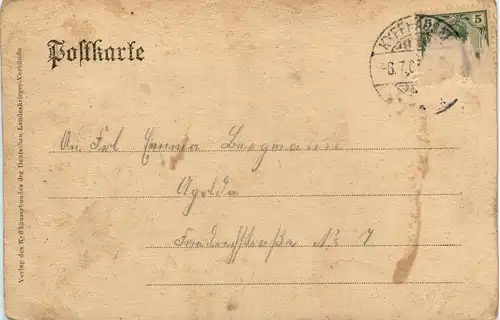 Postkarte
KYFFHÄUSER
6.7.0
5 5
An Frl Emma Bergmann
Apolda
Friedrichstraße No 7
Verlag des Kyffhäuserbundes der Deutschen Landeskrieger-Verbände